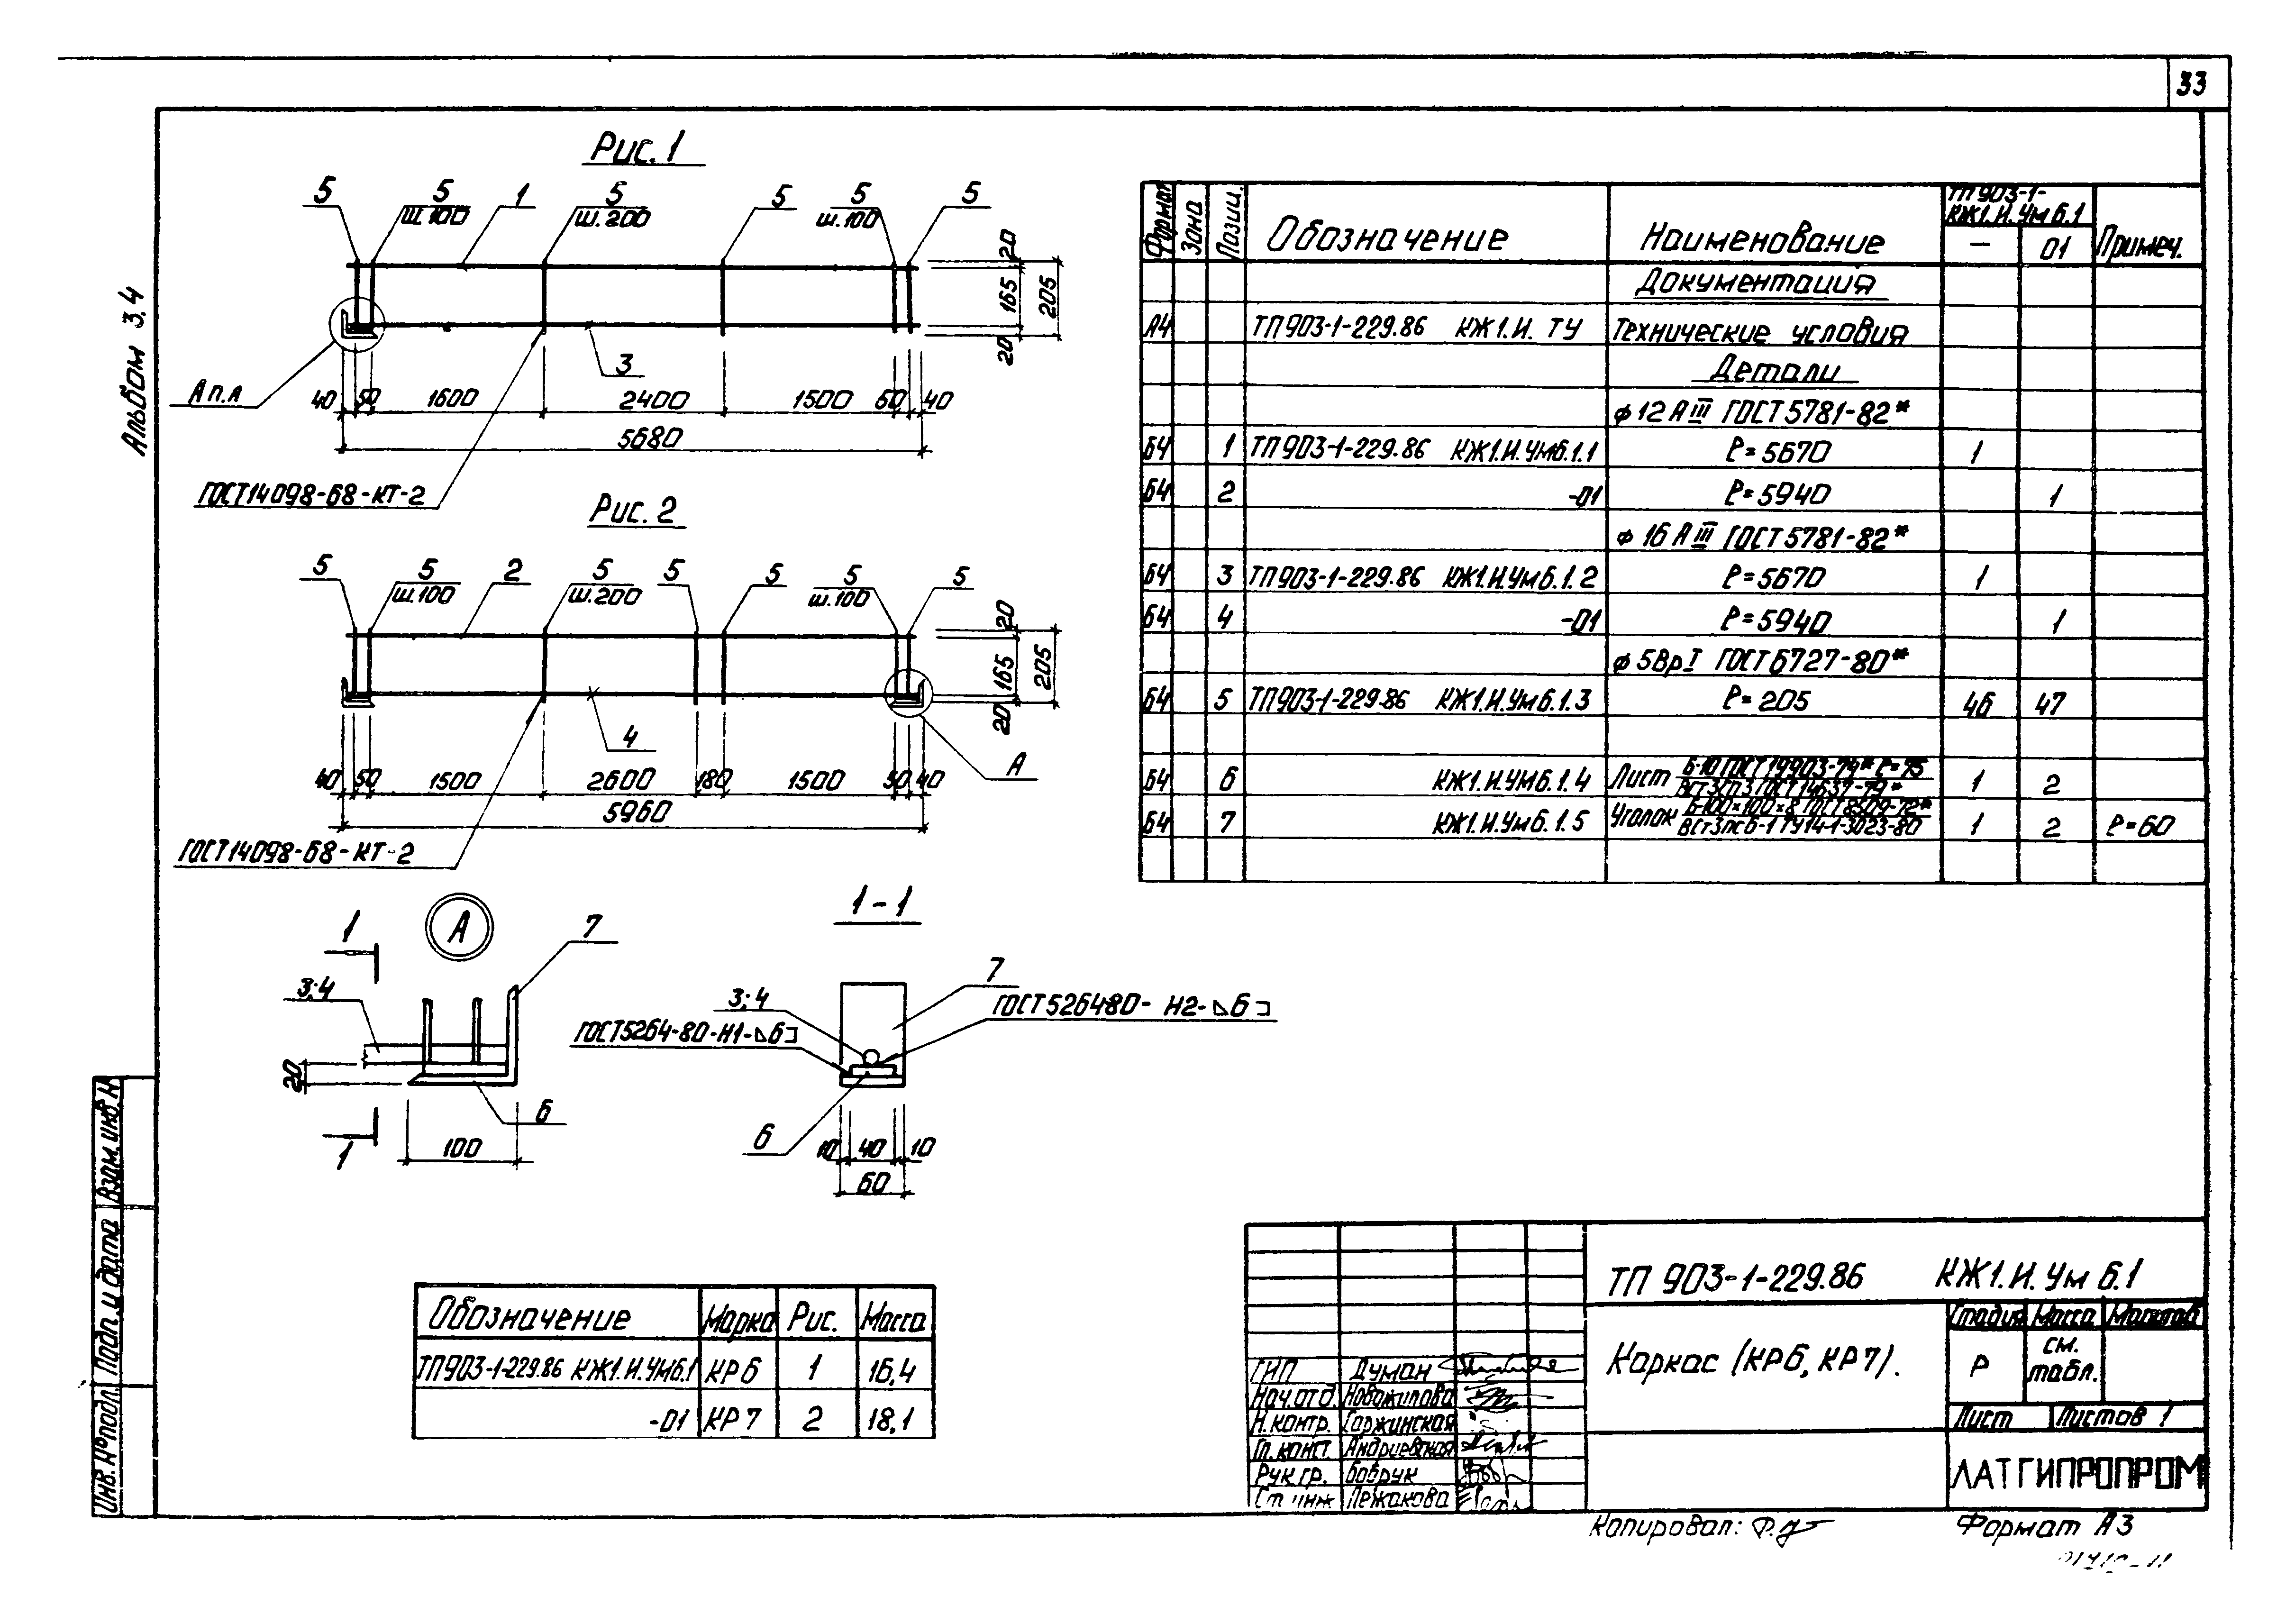 33
Альбом 3,4
Рис. 1
5 5 1 5 5 5 5
ш.100 ш.200 ш.100
20
165 205
20
3
А п.л
40 50 1600 2400 1500 60 40
5680
ГОСТ14098-68-КТ-2
Рис. 2
5 5 2 5 5 5 5 5
ш.100 ш.200 ш.100
20
165 205
20
4
А
40 50 1500 2600 180 1500 50 40
5960
ГОСТ14098-68-КТ-2
1 А 7
3;4
20
6
1 100
1-1
7
3;4 ГОСТ5264-80-Н2-⊿6⊐
ГОСТ5264-80-Н1-⊿6⊐
6
10 40 10
60
Обозначение Марка Рис. Масса
ТП903-1-229.86 КЖ1.И.Ум6.1 КР6 1 16,4
-01 КР7 2 18,1
Формат Зона Позиц. Обозначение Наименование ТП903-1- КЖ1.И.Ум 6.1 Примеч.
— 01
Документация
А4 ТП903-1-229.86 КЖ1.И. ТУ Технические условия
Детали
ф 12 А III ГОСТ 5781-82*
Б4 1 ТП903-1-229.86 КЖ1.И.Ум6.1.1 ℓ=5670 1
Б4 2 -01 ℓ=5940 1
ф 16 А III ГОСТ5781-82*
Б4 3 ТП903-1-229.86 КЖ1.И.Ум6.1.2 ℓ=5670 1
Б4 4 -01 ℓ=5940 1
ф 5ВрI ГОСТ6727-80*
Б4 5 ТП903-1-229.86 КЖ1.И.Ум6.1.3 ℓ=205 46 47
Б4 6 КЖ1.И.Ум6.1.4 Лист Б-10 ГОСТ19903-74* ℓ=75 1 2
ВСт3сп3 ГОСТ14637-79*
Б4 7 КЖ1.И.Ум6.1.5 Уголок Б-100×100×8 ГОСТ8509-72* 1 2 ℓ=60
ВСт3пс6-1 ТУ14-1-3023-80
ТП 903-1-229.86 КЖ1.И.Ум 6.1
Каркас (КР6, КР7).
Стадия Масса Масштаб
Р см. табл.
Лист Листов 1
ЛАТГИПРОПРОМ
ГИП Думан
Нач.отд. Новожилова
Н.контр. Гаржинская
Гл.конст. Андриевская
Рук.гр. Бобрук
Ст инж Лежакова
Инв.№подл. Подп. и дата Взам.инв.№
Копировал:
Формат А3